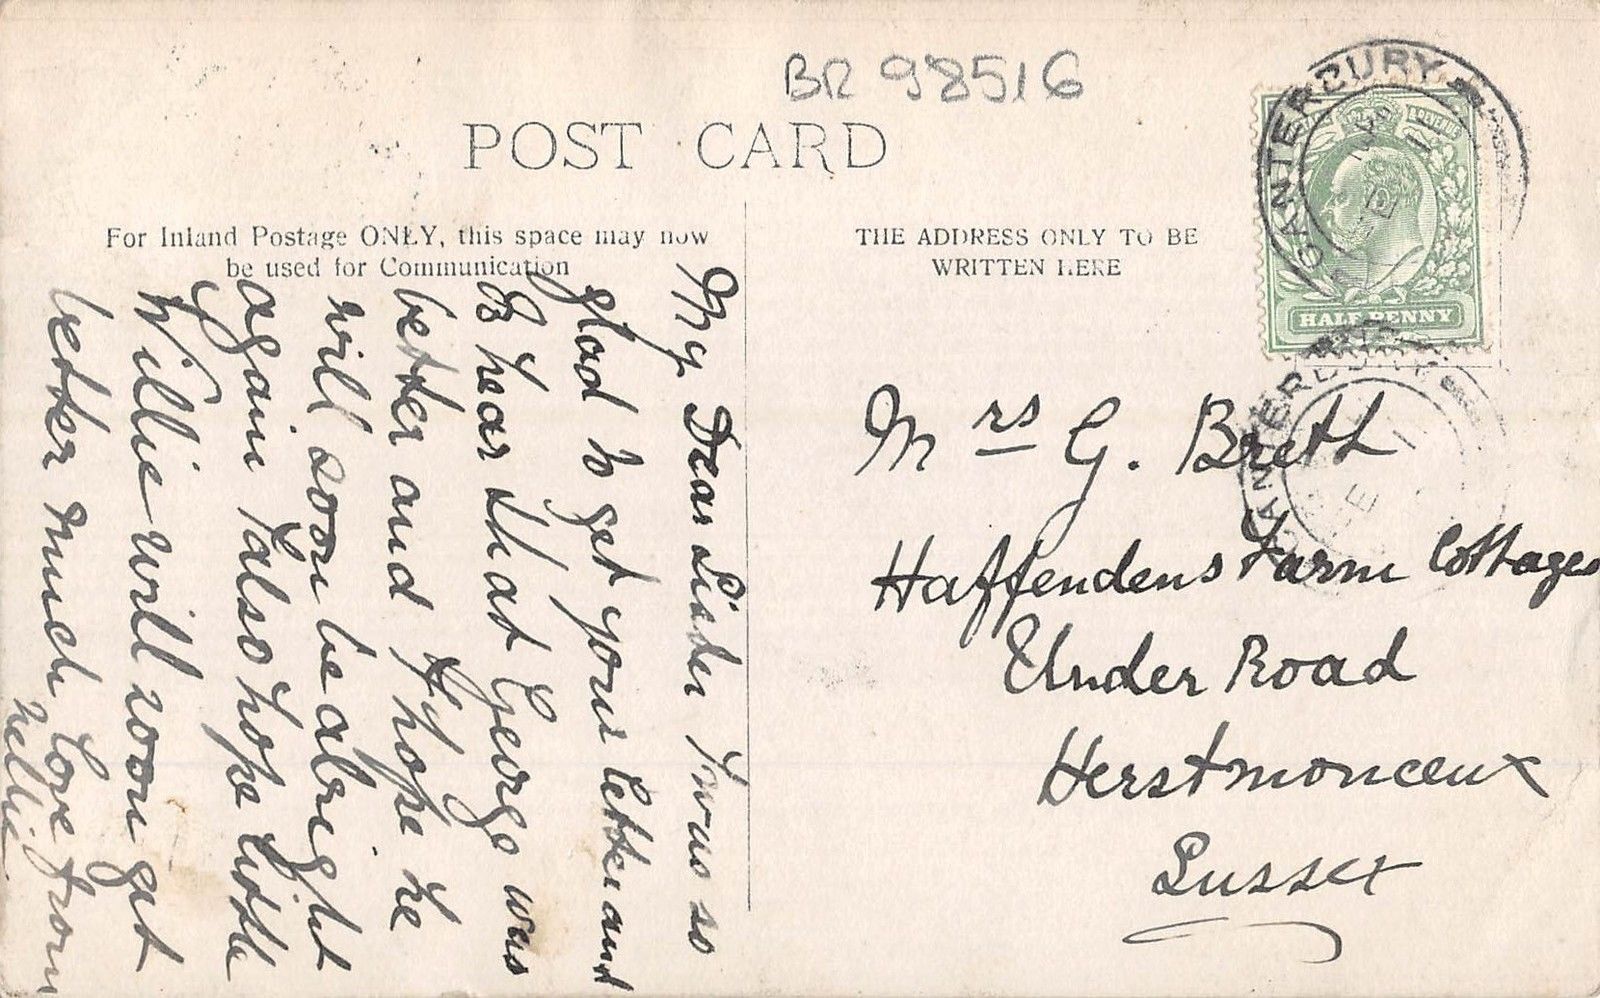 BR 98516
POST CARD
For Inland Postage ONLY, this space may now
be used for Communication
THE ADDRESS ONLY TO BE
WRITTEN HERE
CANTERBURY
HALF PENNY
CANTERBURY
My Dear Sister I was so
glad to get your letter and
to hear that George was
better and I hope he
will soon be alright
again I also hope little
Willie will soon get
better much love from
nellie
Mrs G. Breth
Haffendens Farm Cottages
Under Road
Herstmonceux
Sussex